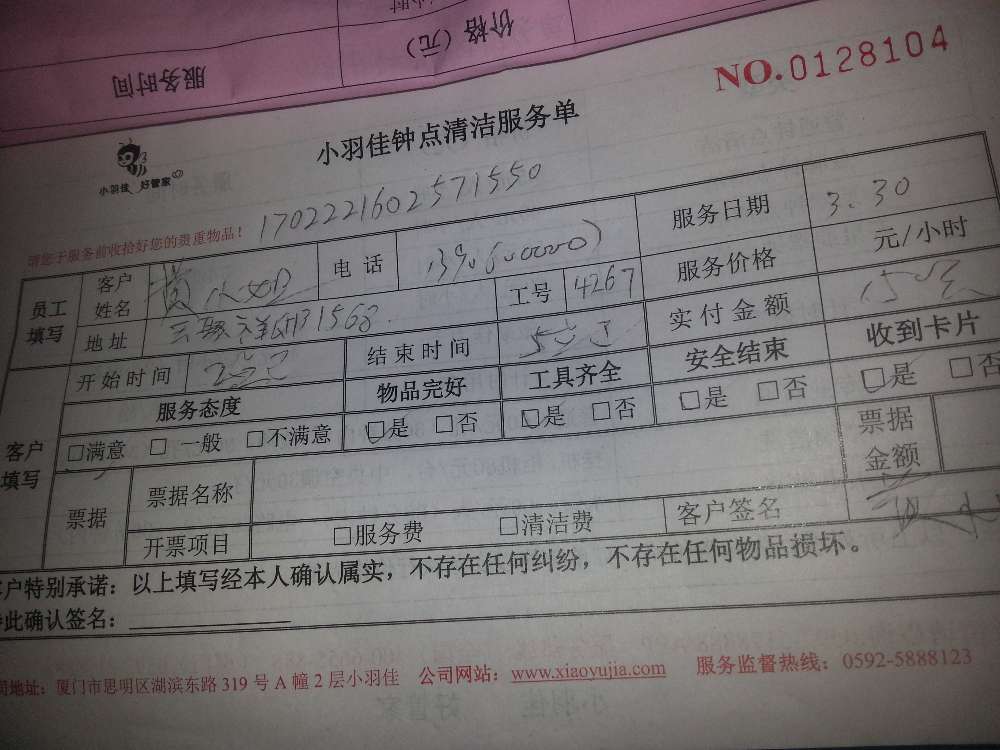 服务时间 价格（元）
NO.0128104
小羽佳钟点清洁服务单
小羽佳 好管家
1702221602571550
请您于服务前收拾好您的贵重物品！
员工填写 客户姓名 电话 服务日期 3.30
地址 工号 4267 服务价格 元/小时
开始时间 结束时间 实付金额
客户填写 服务态度 物品完好 工具齐全 安全结束 收到卡片
□满意 □一般 □不满意 □是 □否 □是 □否 □是 □否 □是 □否
票据 票据名称 票据金额
开票项目 □服务费 □清洁费 客户签名
客户特别承诺：以上填写经本人确认属实，不存在任何纠纷，不存在任何物品损坏。
此确认签名：
地址：厦门市思明区湖滨东路 319 号 A 幢 2 层小羽佳 公司网站：www.xiaoyujia.com 服务监督热线：0592-5888123